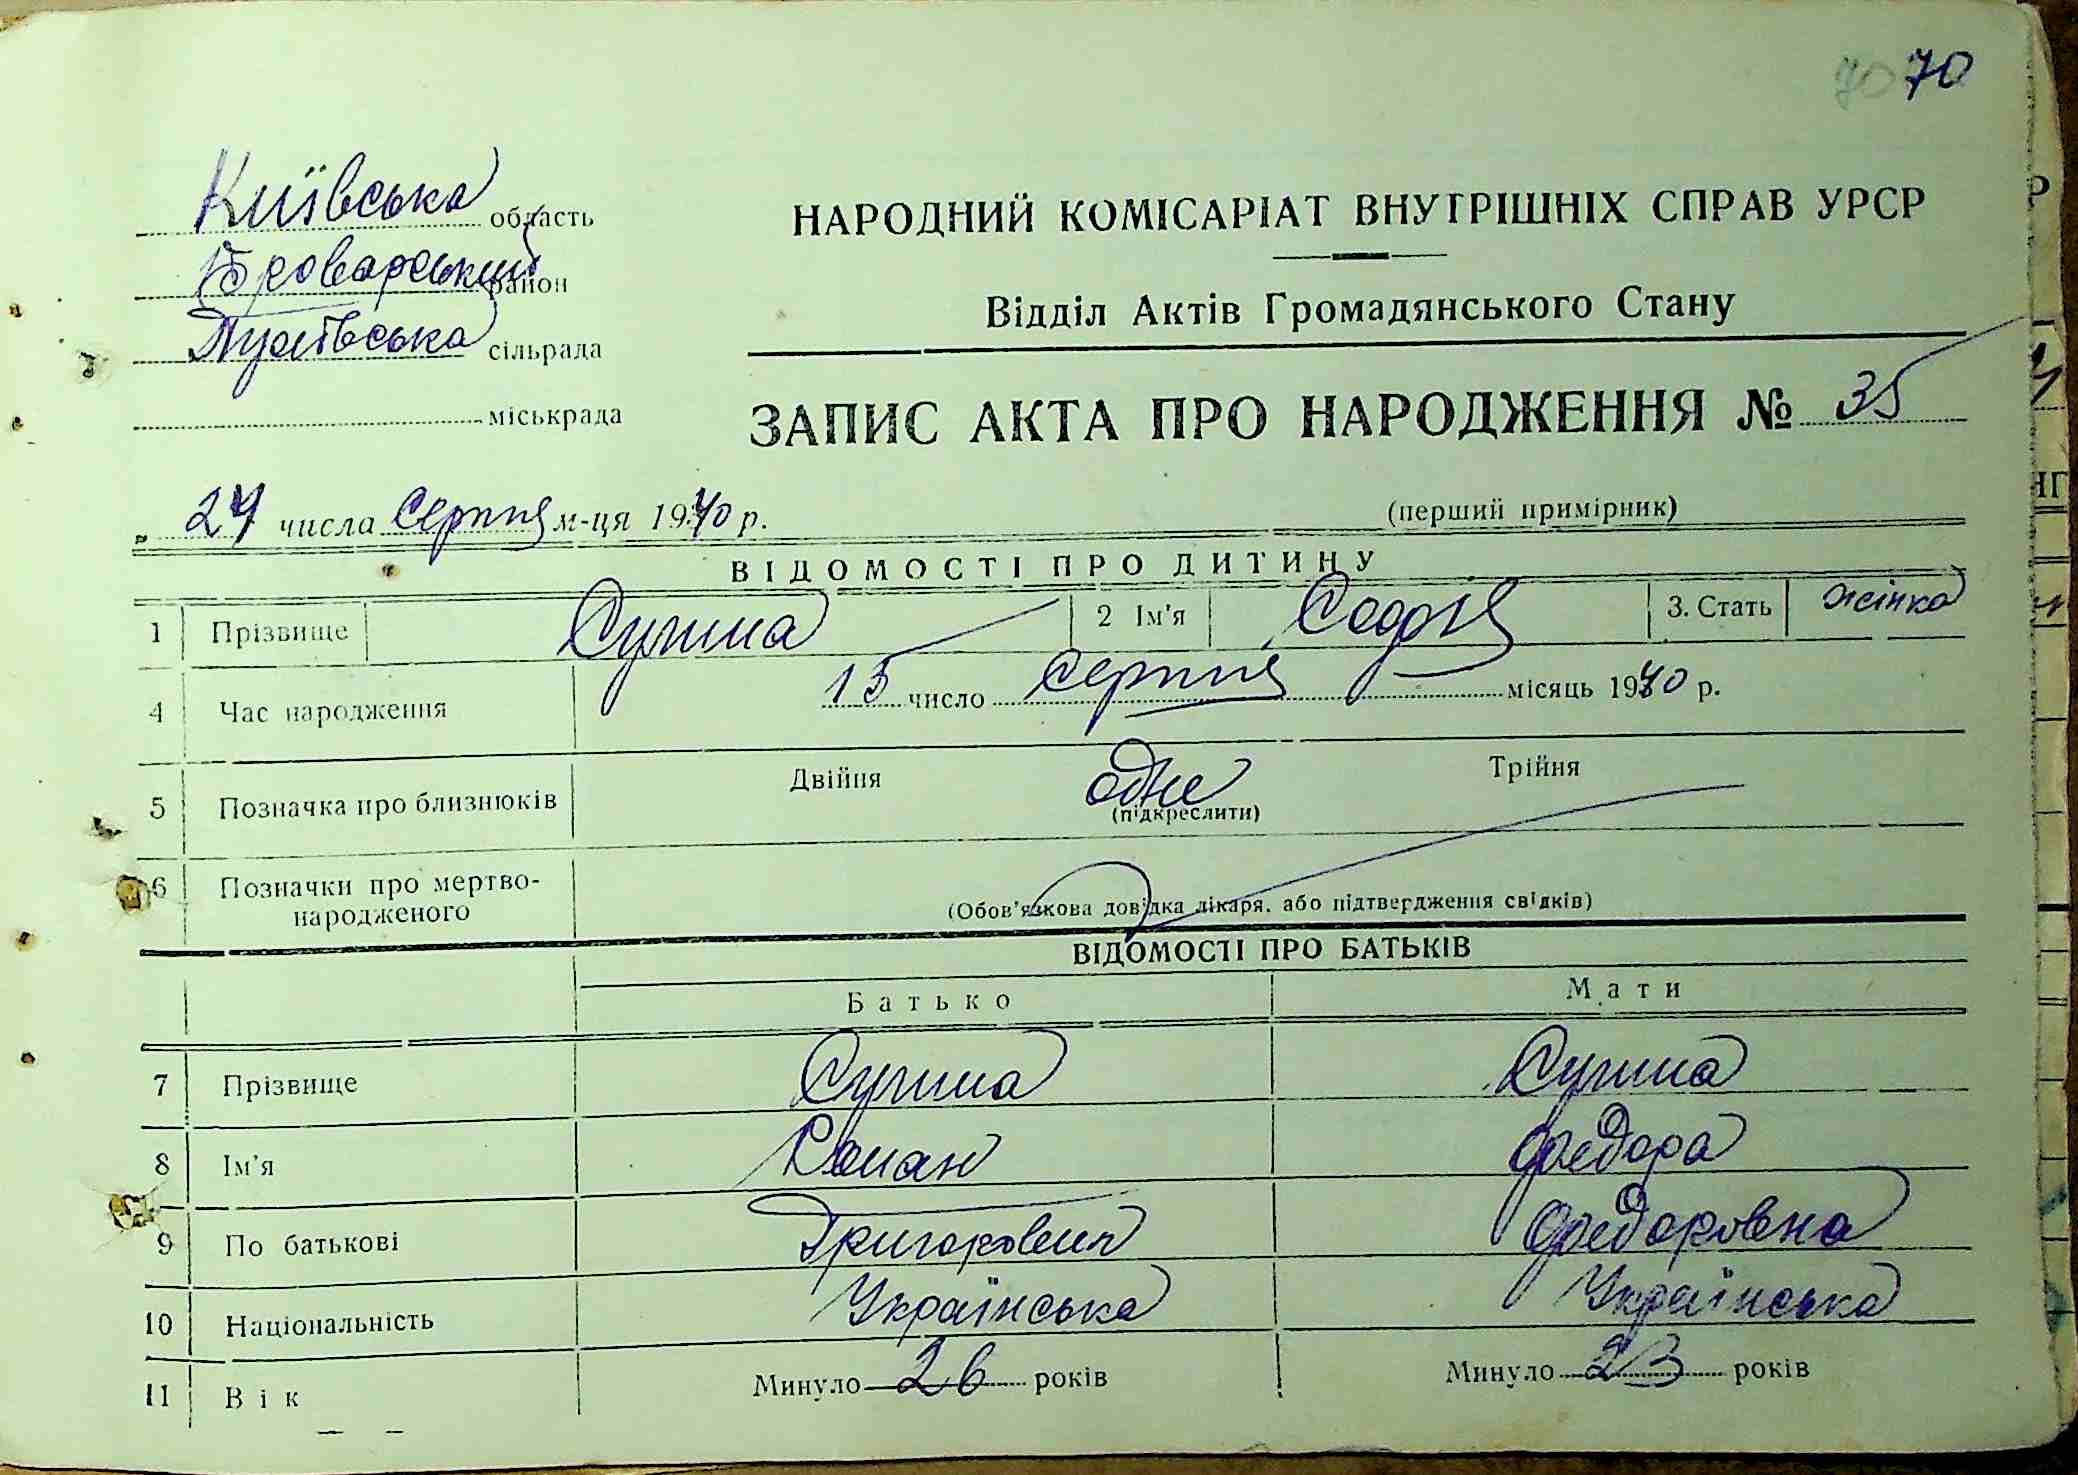 70 70
Київська область
Броварський район
сільрада
міськрада
НАРОДНИЙ КОМІСАРІАТ ВНУТРІШНІХ СПРАВ УРСР
Відділ Актів Громадянського Стану
ЗАПИС АКТА ПРО НАРОДЖЕННЯ № 35
„ 24 числа серпня м-ця 1940 р.
(перший примірник)
ВІДОМОСТІ ПРО ДИТИНУ
1 Прізвище 2 Ім'я 3. Стать жінка
4 Час народження 15 число серпня місяць 1940 р.
5 Позначка про близнюків Двійня одне Трійня
(підкреслити)
6 Позначки про мертво-
народженого
(Обов'язкова довідка лікаря, або підтвердження свідків)
ВІДОМОСТІ ПРО БАТЬКІВ
Батько Мати
7 Прізвище
8 Ім'я Роман Федора
9 По батькові Григорович Федоровна
10 Національність Українська Українська
11 Вік Минуло 26 років Минуло 23 років